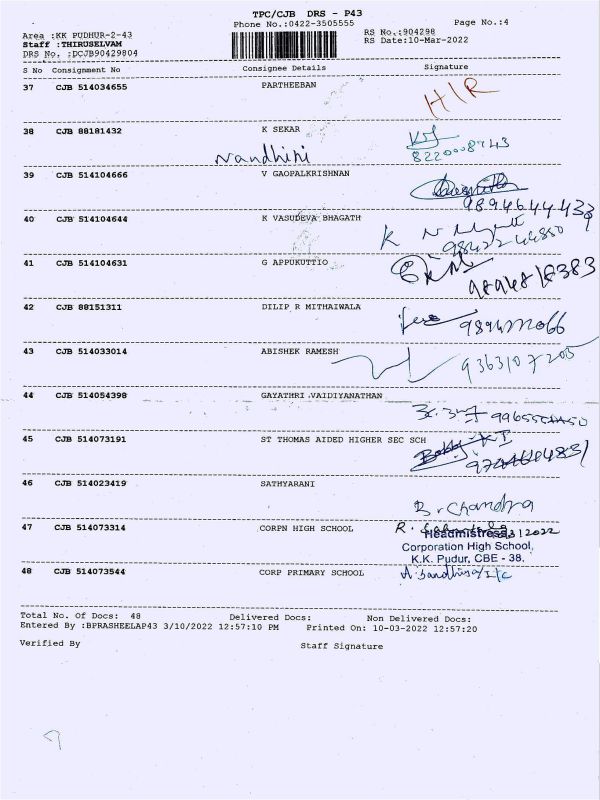 TPC/CJB DRS - P43
Phone No.:0422-3505555
Page No.:4
Area :KK PUDHUR-2-43
RS No.:904298
Staff :THIRUSELVAM
RS Date:10-Mar-2022
DRS No. :DCJB90429804
S No Consignment No Consignee Details Signature
37 CJB 514034655 PARTHEEBAN
HIR
38 CJB 88181432 K SEKAR
Nandhini
8220008743
39 CJB 514104666 V GAOPALKRISHNAN
40 CJB 514104644 K VASUDEVA BHAGATH
K
98422 44850
41 CJB 514104631 G APPUKUTTIO
42 CJB 88151311 DILIP R MITHAIWALA
43 CJB 514033014 ABISHEK RAMESH
9363107205
44 CJB 514054398 GAYATHRI.VAIDIYANATHAN
45 CJB 514073191 ST THOMAS AIDED HIGHER SEC SCH
46 CJB 514023419 SATHYARANI
B. Chandra
47 CJB 514073314 CORPN HIGH SCHOOL
Headmistress
Corporation High School,
K.K. Pudur, CBE - 38.
48 CJB 514073544 CORP PRIMARY SCHOOL
Total No. Of Docs: 48 Delivered Docs: Non Delivered Docs:
Entered By :BPRASHEELAP43 3/10/2022 12:57:10 PM Printed On: 10-03-2022 12:57:20
Verified By Staff Signature